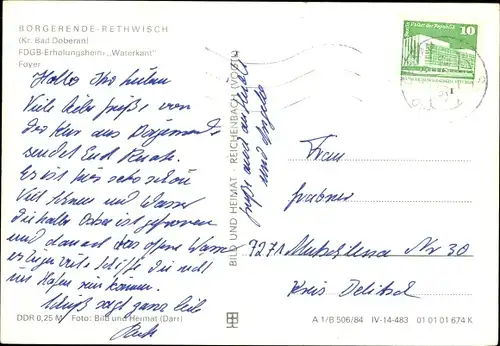 BÖRGERENDE-RETHWISCH
(Kr. Bad Doberan)
FDGB-Erholungsheim „Waterkant“
Foyer
Hallo Ihr Lieben
Viele liebe Grüße von
der Kur aus Börgerende
sendet Euch
Es ist hier sehr schön
Viel und Wasser
die halbe Ostsee ist gefroren
und danach das offene Wasser
es liegen viele Schiffe die nicht
in Hafen rein kommen.
Tschüß sagt ganz lieb
DDR 0,25 M Foto: Bild und Heimat (Darr)
BILD UND HEIMAT · REICHENBACH (VOGTL)
Grüße auch an
und Angela
10
Frau
7271 Nr 30
Kreis Delitzsch
A 1/B 506/84 IV-14-483 01 01 01 674 K